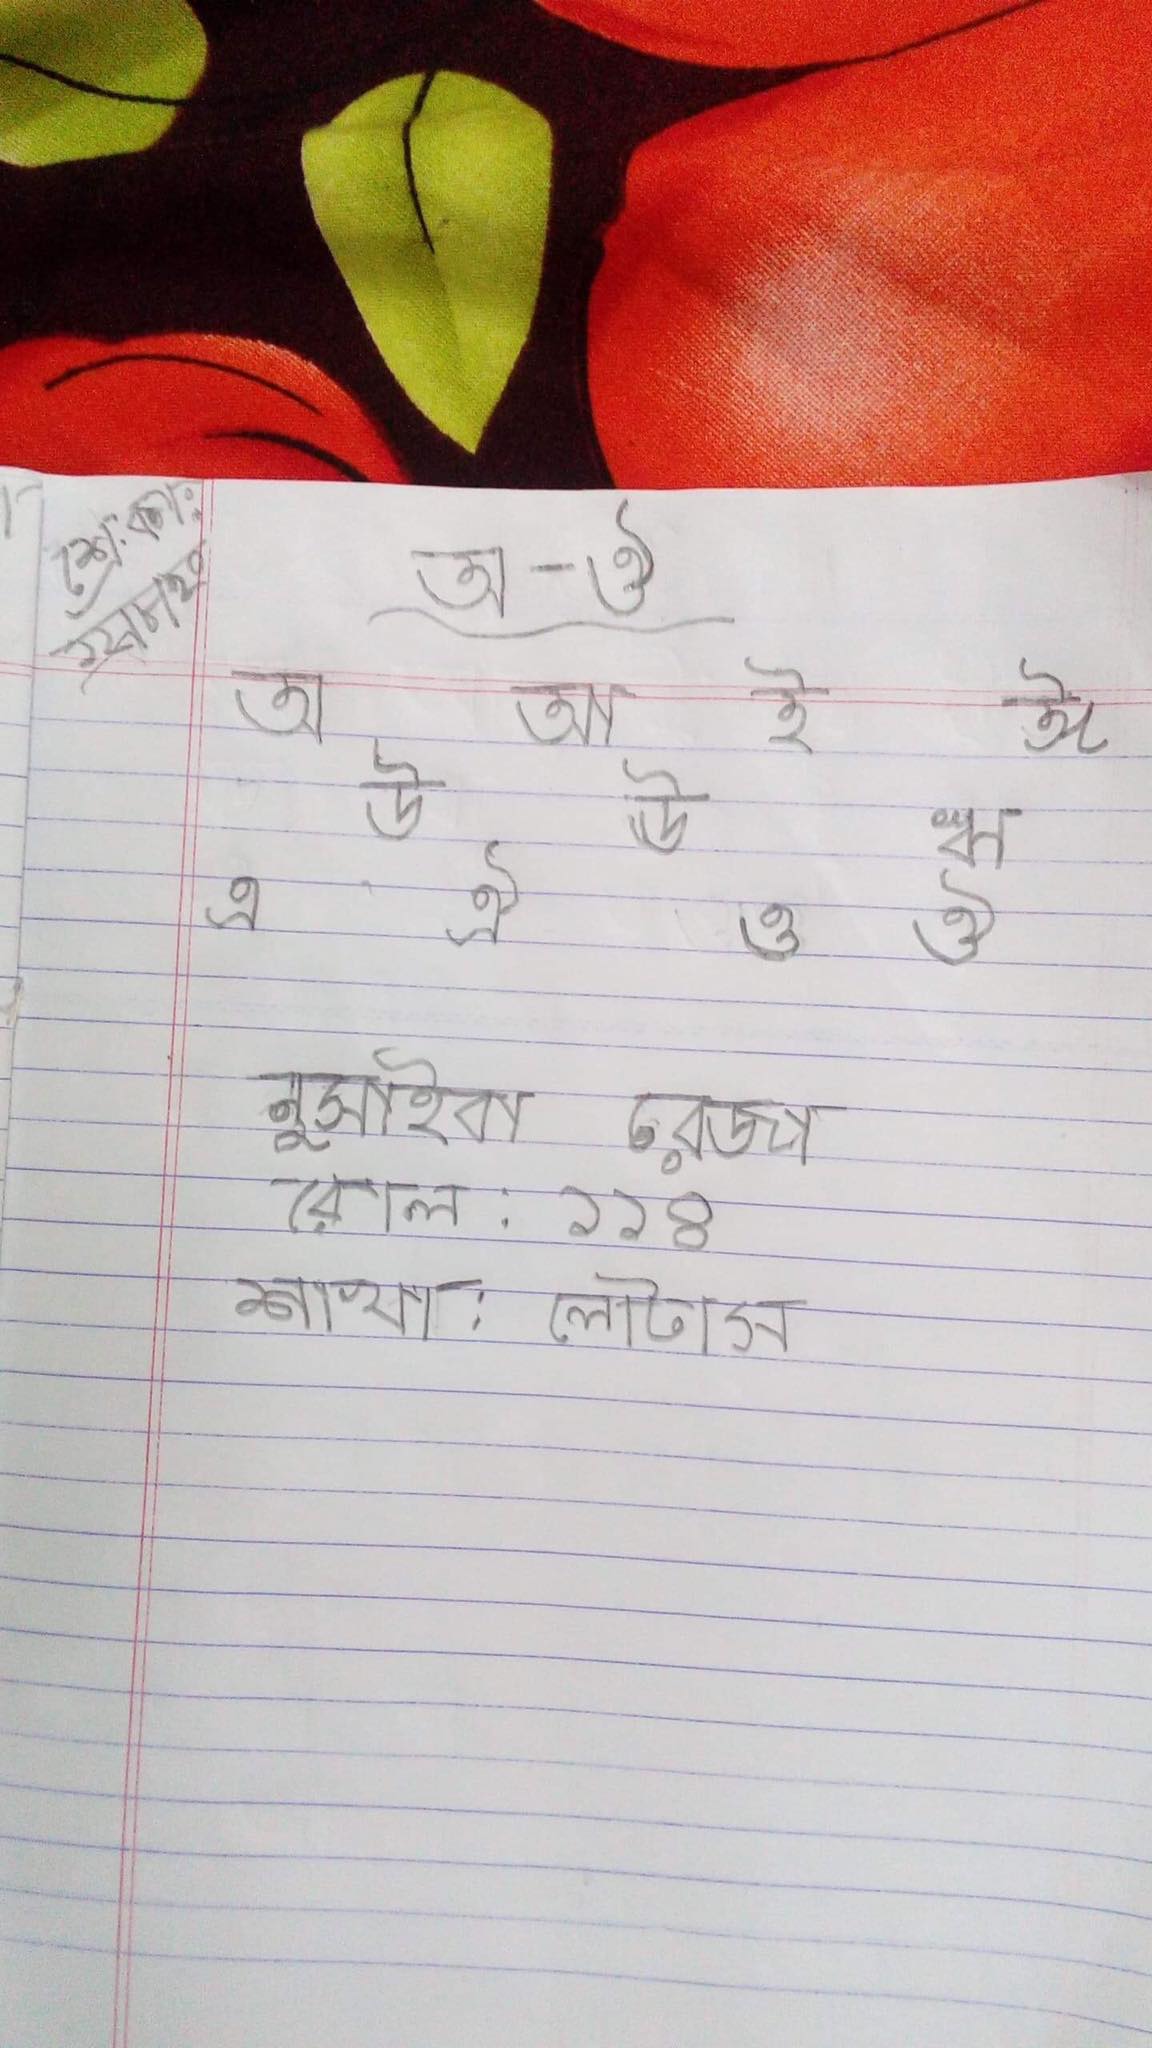 শ্রে. কা:
অ - ঔ
অ আ ই ঈ
উ ঊ ঋ
এ ঐ ও ঔ
নুসাইবা রেজা
রোল : ১১৪
শাখা : লোটাস